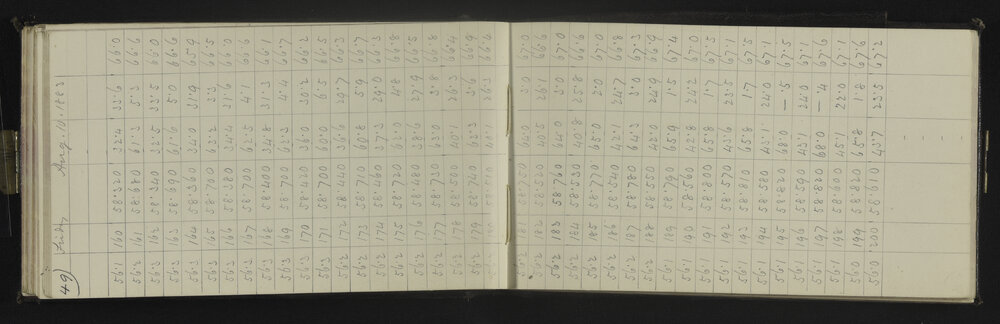 49) Friday, Aug. 10. 1883
56.1 160 58.320 32.4 33.6 66.0
56.1 161 58.680 61.3 5.3 66.6
56.3 162 58.340 32.5 33.5 66.0
56.3 163 58.690 61.6 5.0 66.6
56.3 164 58.360 34.0 31.9 65.9
56.3 165 58.700 63.2 3.3 66.5
56.3 166 58.380 34.4 31.6 66.0
56.3 167 58.700 62.5 4.1 66.6
56.3 168 58.400 34.8 31.3 66.1
56.3 169 58.700 62.3 4.4 66.7
56.2 170 58.420 36.0 30.2 66.2
56.2 171 58.700 60.0 6.5 66.5
56.2 172 58.440 36.6 29.7 66.3
56.2 173 58.710 60.8 5.9 66.7
56.2 174 58.460 37.3 29.0 66.3
56.2 175 58.720 62.0 4.8 66.8
56.2 176 58.480 38.6 27.9 66.5
56.2 177 58.730 63.0 3.8 66.8
56.2 178 58.500 40.1 26.3 66.4
56.2 179 58.740 63.3 3.6 66.9
26.3 66.6
56.2 181 58.750 64.0 3.0 67.0
56.2 182 58.520 40.5 26.1 66.6
56.2 183 58.760 64.0 3.0 67.0
56.2 184 58.530 40.8 25.8 66.6
56.2 185 58.770 65.0 2.0 67.0
56.2 186 58.540 42.1 24.7 66.8
56.2 187 58.780 64.3 3.0 67.3
56.2 188 58.550 42.0 24.9 66.9
56.1 189 58.790 65.9 1.5 67.4
56.1 190 58.560 42.8 24.2 67.0
56.1 191 58.800 65.8 1.7 67.5
56.1 192 58.570 43.6 23.5 67.1
56.1 193 58.810 65.8 1.7 67.5
56.1 194 58.580 43.1 24.0 67.1
56.1 195 58.820 68.0 -.5 67.5
56.1 196 58.590 43.1 24.0 67.1
56.1 197 58.820 68.0 -.4 67.6
56.1 198 58.600 45.1 22.0 67.1
56.0 199 58.820 65.8 1.8 67.6
56.0 200 58.610 43.7 23.5 67.2